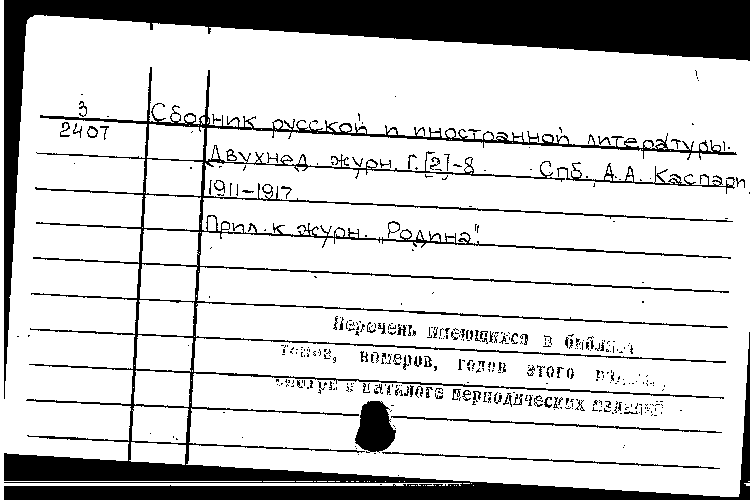 3
2407
Сборник русской и иностранной литературы.
Двухнед. журн. Г. [2]-8 Спб., А.А. Каспари,
1911-1917.
Прил. к журн. „Родина".
Перечень имеющихся в библи
томов, номеров, годов этого
смотри в каталоге периодических изданий